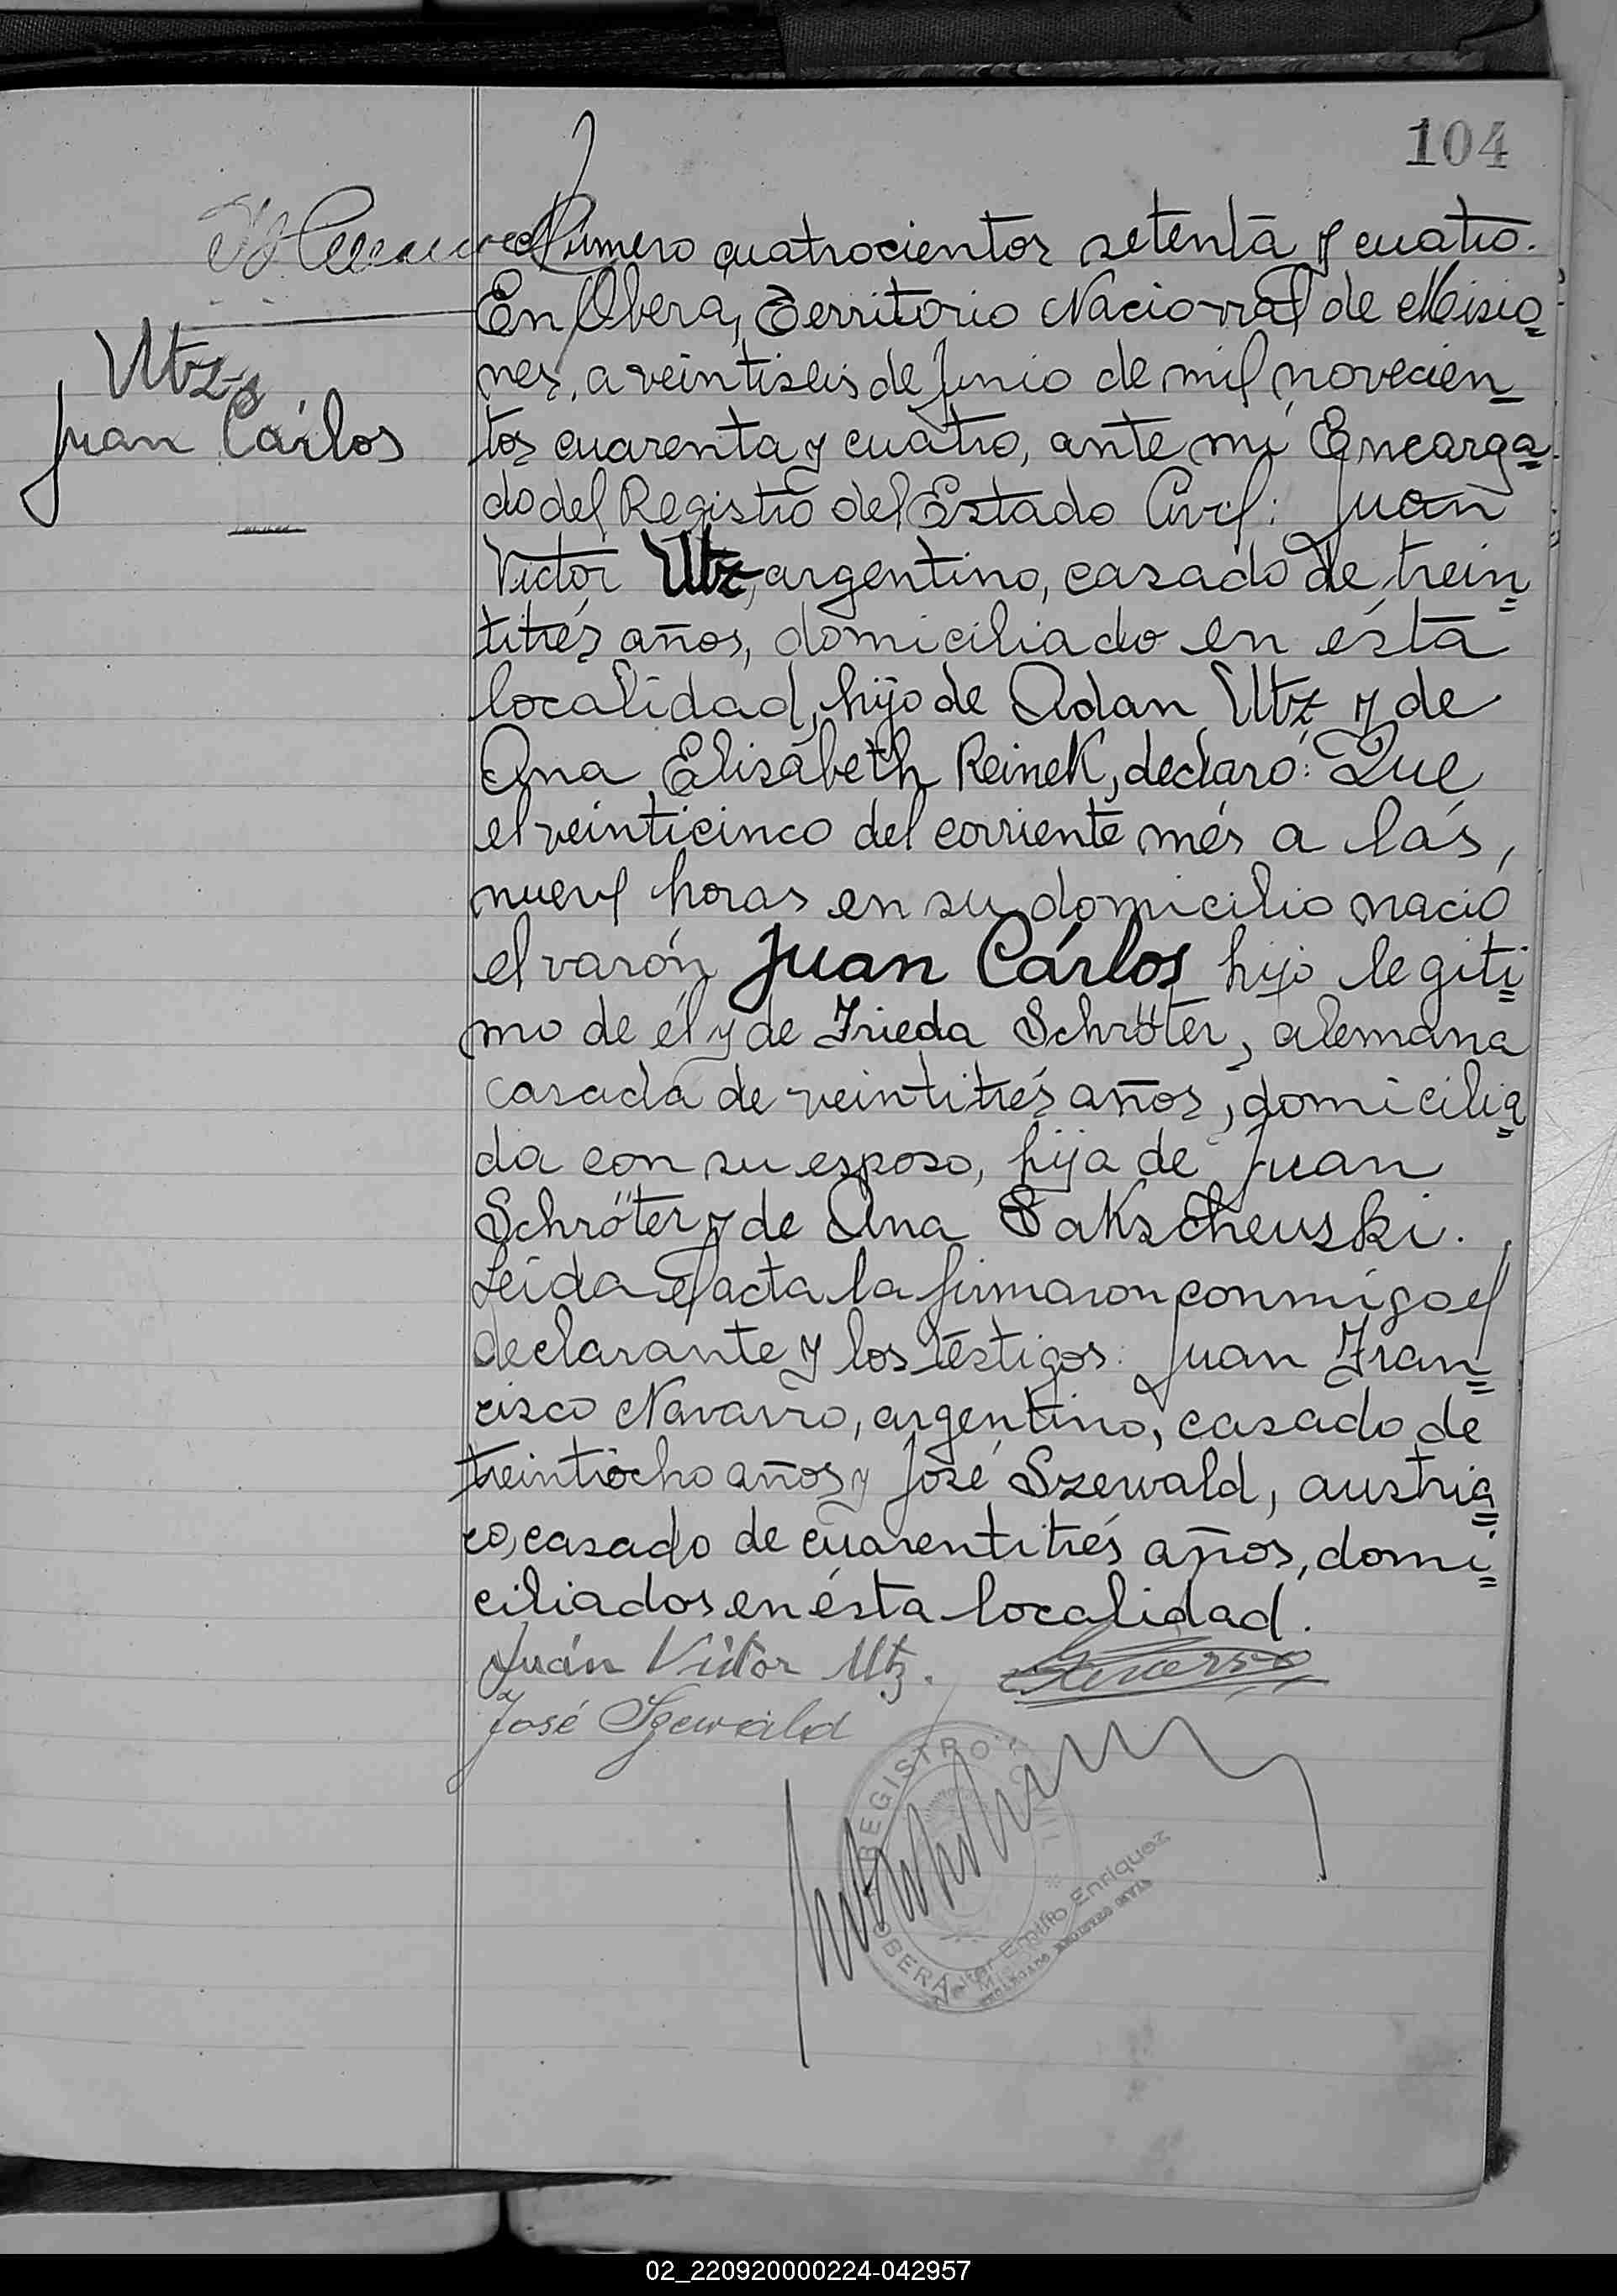 104
Número cuatrocientos setenta y cuatro.
En Oberá, Territorio Nacional de Misio=
nes, a veintiseis de Junio de mil novecien=
Utz,
Juan Cárlos
tos cuarenta y cuatro, ante mi Encarga=
do del Registro del Estado Civil: Juan
Victor Utz, argentino, casado de trein=
titrés años, domiciliado en ésta
localidad, hijo de Adan Utz y de
Ana Elisabeth Reinek, declaró: Que
el veinticinco del corriente més a las,
nueve horas en su domicilio nació
el varón Juan Cárlos hijo legiti=
mo de él y de Frieda Schröter, alemana
casada de veintitrés años, domicilia=
da con su esposo, hija de Juan
Schröter y de Ana Sakscheuski.
Leida el acta la firmaron conmigo el
declarante y los téstigos: Juan Fran=
cisco Navarro, argentino, casado de
treintiocho años y José Szewald, austria=
co, casado de cuarentitrés años, domi=
ciliados en ésta localidad.
Juán Victor Utz.
José Szewald
REGISTRO CIVIL
OBERÁ
Emilio Enriquez
ENCARGADO REGISTRO CIVIL
02_220920000224-042957